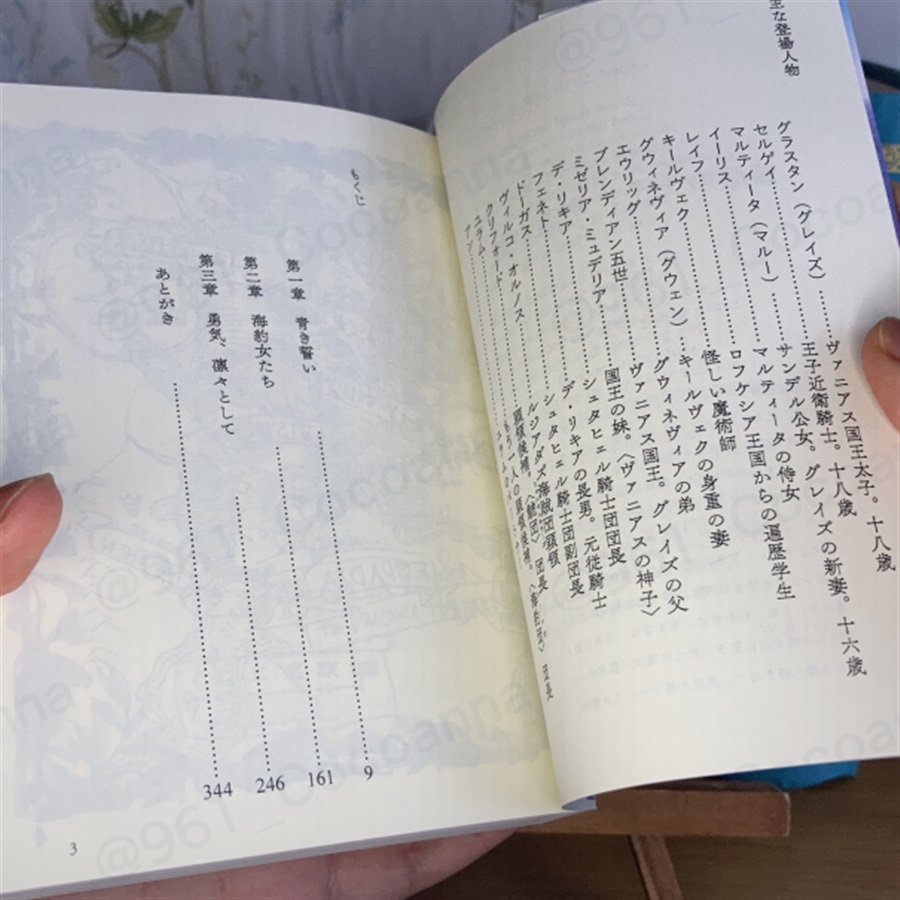 主な登場人物
グラスタン（グレイズ）……ヴァニアス国王太子。十八歳
セルゲイ……王子近衛騎士。十八歳
マルティータ（マルー）……サンデル公女。グレイズの新妻。十六歳
イーリス……マルティータの侍女
レイフ……ロフケシア王国からの遍歴学生
キールヴェク……怪しい魔術師
グウィネヴィア（グウェン）……キールヴェクの身重の妻
エウリッグ……グウィネヴィアの弟
ブレンディアン五世……ヴァニアス国王。グレイズの父
ミゼリア・ミュデリア……国王の妹。〈ヴァニアスの神子〉
デ・リキア……シュタヒェル騎士団団長
フェネト……デ・リキアの長男。元従騎士
ドーガス……シュタヒェル騎士団副団長
ヴィルコ・オルノス……ルジアダズ海賊団頭領
クリフォード……頭領候補。〈鯱団〉団長
ユラム……もう一人の頭領候補。〈海豹団〉団長
もくじ
第一章 青き誓い……9
第二章 海豹女たち……161
第三章 勇気、凛々として……246
あとがき……344
3
@961_cocoanna